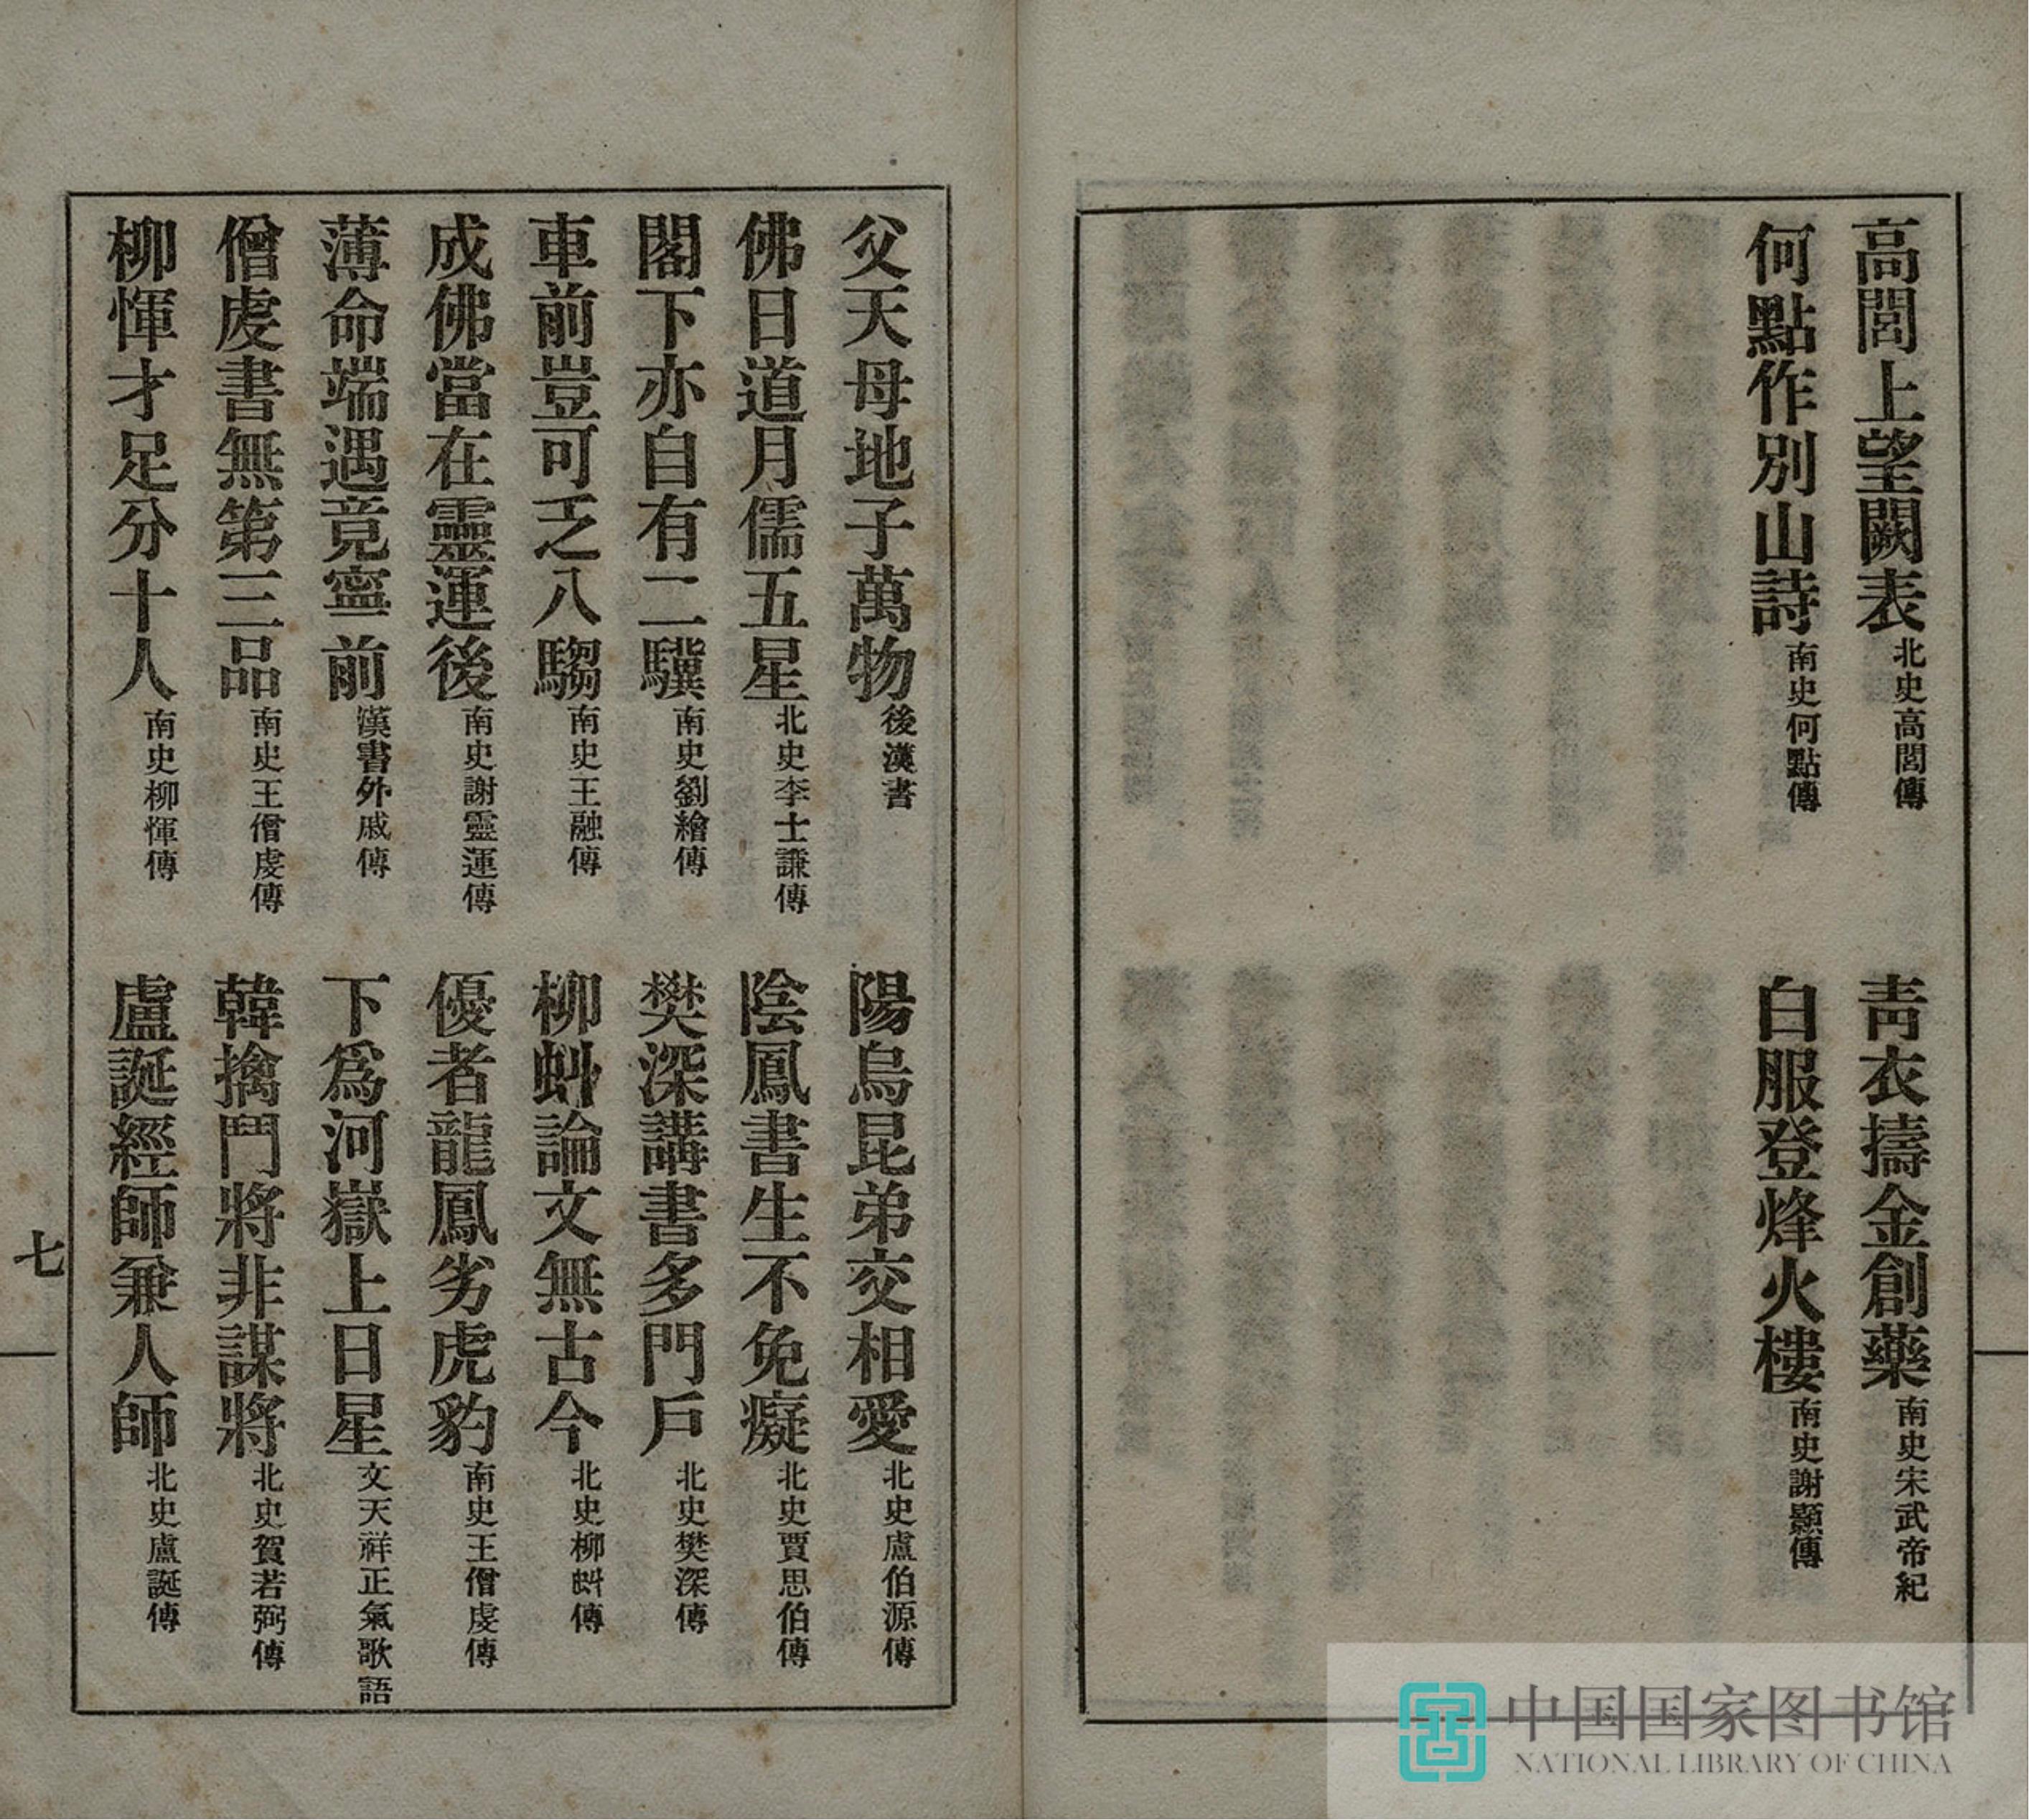 高閭上望闕表北史高閭傳
青衣擣金創藥南史宋武帝紀
何點作別山詩南史何點傳
白服登烽火樓南史謝顥傳
父天母地子萬物後漢書
陽烏昆弟交相愛北史盧伯源傳
佛日道月儒五星北史李士謙傳
陰鳳書生不免癡北史賈思伯傳
閣下亦自有二驥南史劉繪傳
樊深講書多門戶北史樊深傳
車前豈可乏八騶南史王融傳
柳虯論文無古今北史柳虯傳
成佛當在靈運後南史謝靈運傳
優者龍鳳劣虎豹南史王僧虔傳
薄命端遇竟寧前漢書外戚傳
下爲河嶽上日星文天祥正氣歌語
僧虔書無第三品南史王僧虔傳
韓擒鬥將非謀將北史賀若弼傳
柳惲才足分十人南史柳惲傳
盧誕經師兼人師北史盧誕傳
七
中国国家图书馆
NATIONAL LIBRARY OF CHINA